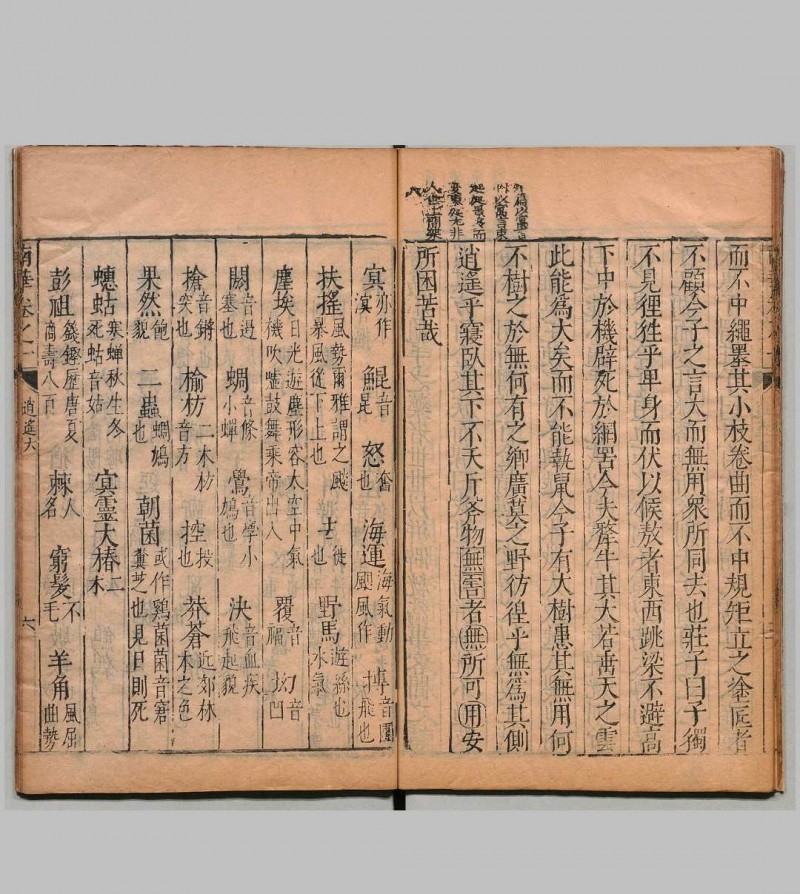 而不中繩墨其小枝卷曲而不中規矩立之塗匠者
不顧今子之言大而無用眾所同去也莊子曰子獨
不見狸狌乎卑身而伏以候敖者東西跳梁不避高
下中於機辟死於網罟今夫犛牛其大若𠄔天之雲
此能爲大矣而不能執䑕今子有大樹患其無用何
不樹之於無何有之鄉廣莫之野彷徨乎無為其側
逍遙乎寢臥其下不夭斤斧物無害者無所可用安
所困苦哉
㝠亦作溟 鯤音昆 怒奮 海運海氣動颶風作 搏音團飛也
扶搖風勢爾雅謂之飈暴風從下上也 去徙也 野馬遊絲也水氣
塵埃日光遊塵形容太空中氣機吹噓鼓舞乘帝出入 覆音福 坳音凹
閼音遏塞也 蜩音條小蟬 鷽音學小鳩也 決音血疾飛起貌
搶音鏘突也 榆枋二木枋音方 控投也 莽蒼近郊林木之色
果然飽貌 二蟲蜩鳩也 朝菌或作鷄菌菌音窘糞芝也見日則死
蟪蛄寒蟬秋生冬死蛄音姑 㝠靈大椿二木
彭祖錢鏗歷唐夏商壽八百 棘人名 窮髮不毛 羊角風屈曲勢
南華卷之一 逍遙六 六